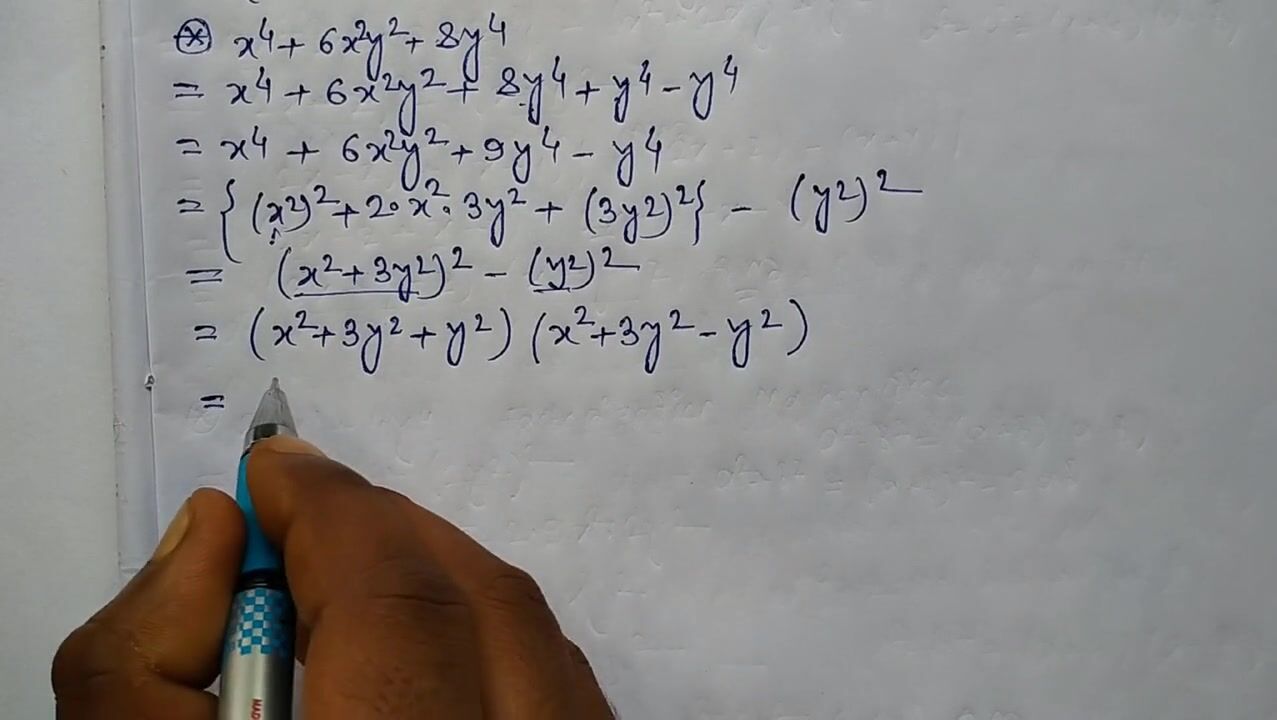 ⊛ x⁴ + 6x²y² + 8y⁴
= x⁴ + 6x²y² + 8y⁴ + y⁴ - y⁴
= x⁴ + 6x²y² + 9y⁴ - y⁴
= {(x²)² + 2·x²·3y² + (3y²)²} - (y²)²
= (x²+3y²)² - (y²)²
= (x²+3y²+y²) (x²+3y²-y²)
=
MAD